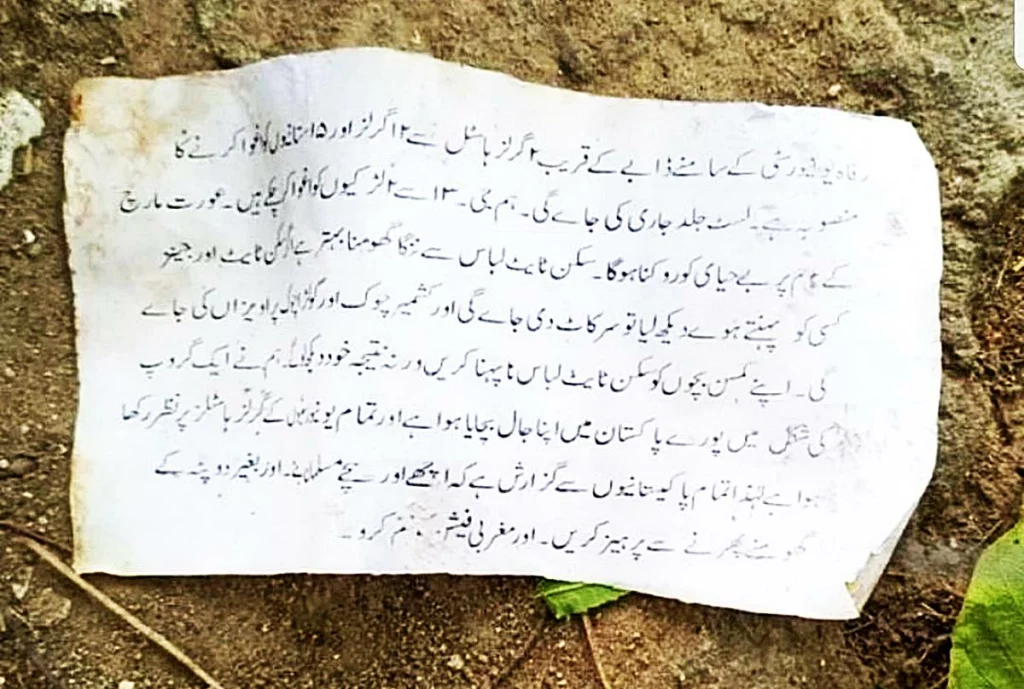 رفاہ یونیورسٹی کے سامنے ڈابے کے قریب ۲ گرلز ہاسٹل سے ۱۲ گرلز اور ۱۵ استانیوں کو اغوا کرنے کا
منصوبہ ہے۔ لسٹ جلد جاری کی جاے گی۔ ہم بی۔ ۱۳ سے ۲ لڑکیوں کو اغوا کر چکے ہیں۔ عورت مارچ
کے نام پر بے حیای کو روکنا ہوگا۔ سکن ٹایٹ لباس سے ننگا گھومنا بہتر ہے اگر سکن ٹایٹ اور جینز
کسی کو پہنتے ہوے دیکھ لیا تو سر کاٹ دی جاے گی اور کشمیر چوک اور گولڑا پل پر اویزاں کی جاے
گی۔ اپنے کمسن بچوں کو سکن ٹایٹ لباس نا پہنا کریں ورنہ نتیجہ خود دیکھ لو گے۔ ہم نے ایک گروپ
کی شکل میں پورے پاکستان میں اپنا جال بچایا ہوا ہے اور تمام یونیورسٹی کے گرلز ہاسٹلز پر نظر رکھا
ہوا ہے لہٰذا تمام پاکیستانیوں سے گزارش ہے کہ اچھے اور سچے مسلمان بنے۔ اور بغیر دوپٹہ کے
گھومنے پھرنے سے پرہیز کریں۔ اور مغربی فیشن ختم کرو۔